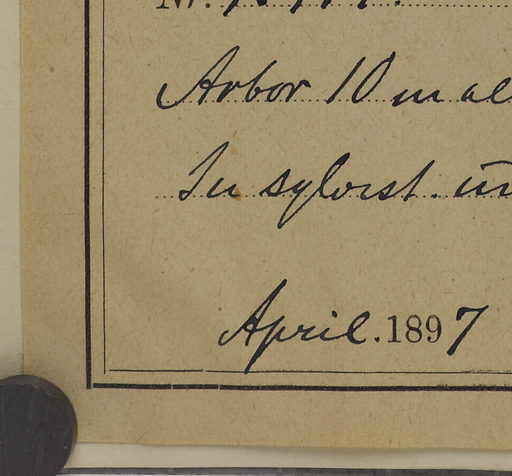 Nr.
Arbor 10 m al
In sylvist.
April. 1897